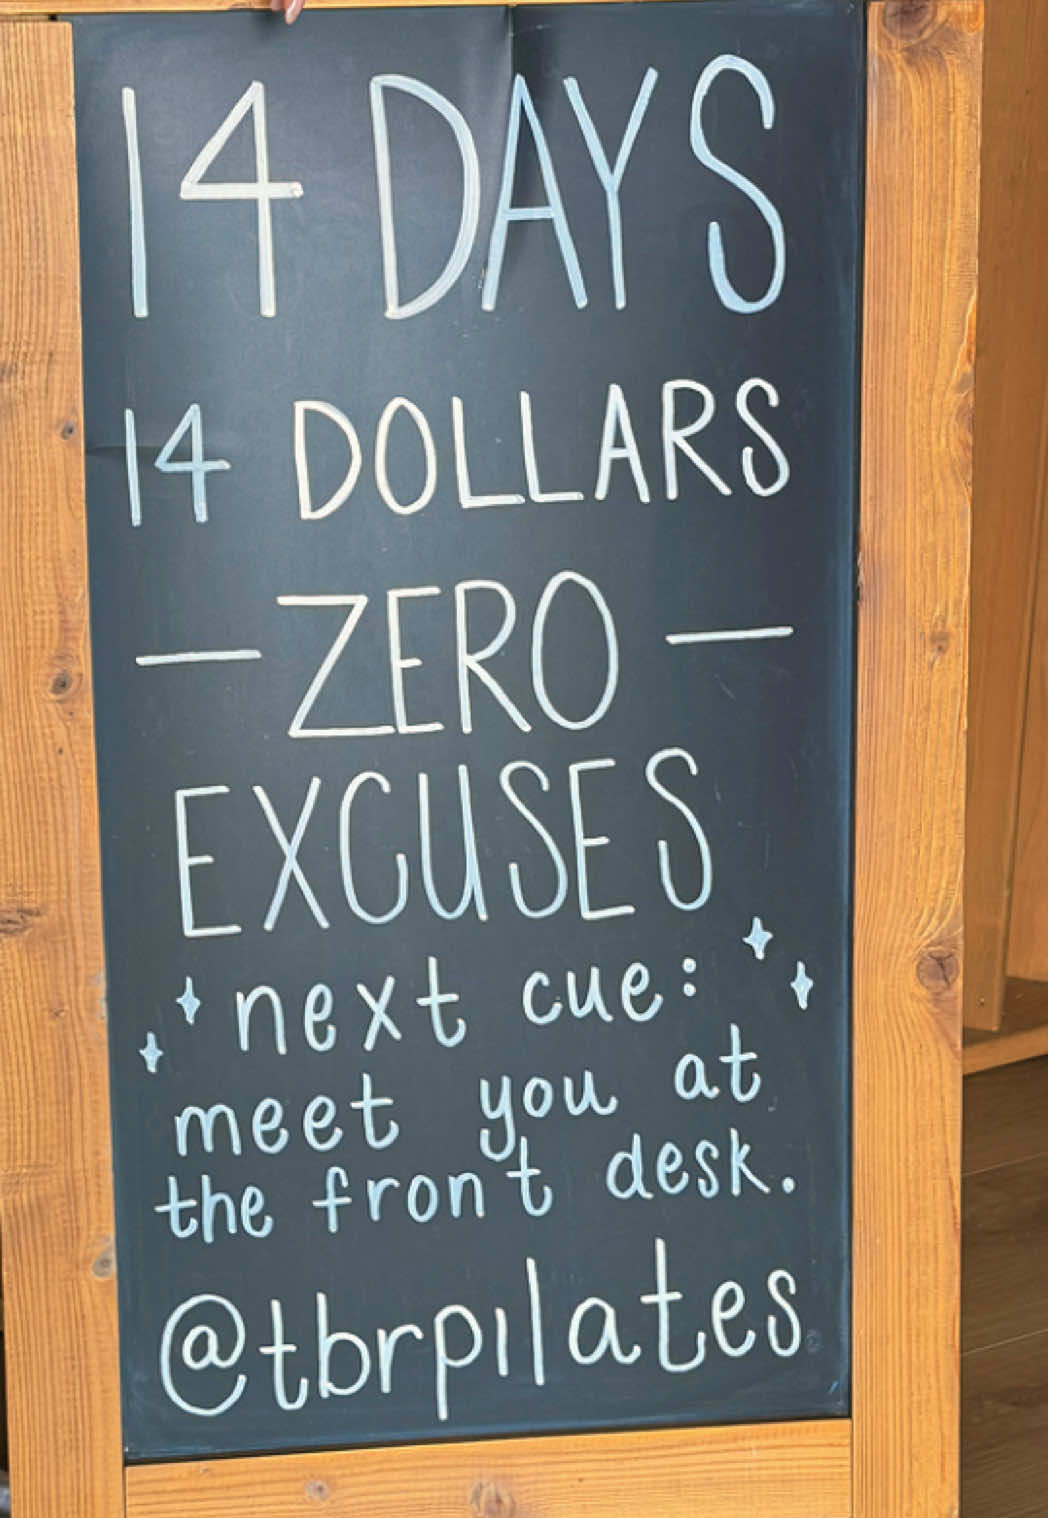 14 DAYS
14 DOLLARS
— ZERO —
EXCUSES
next cue:
meet you at
the front desk.
@tbrpilates